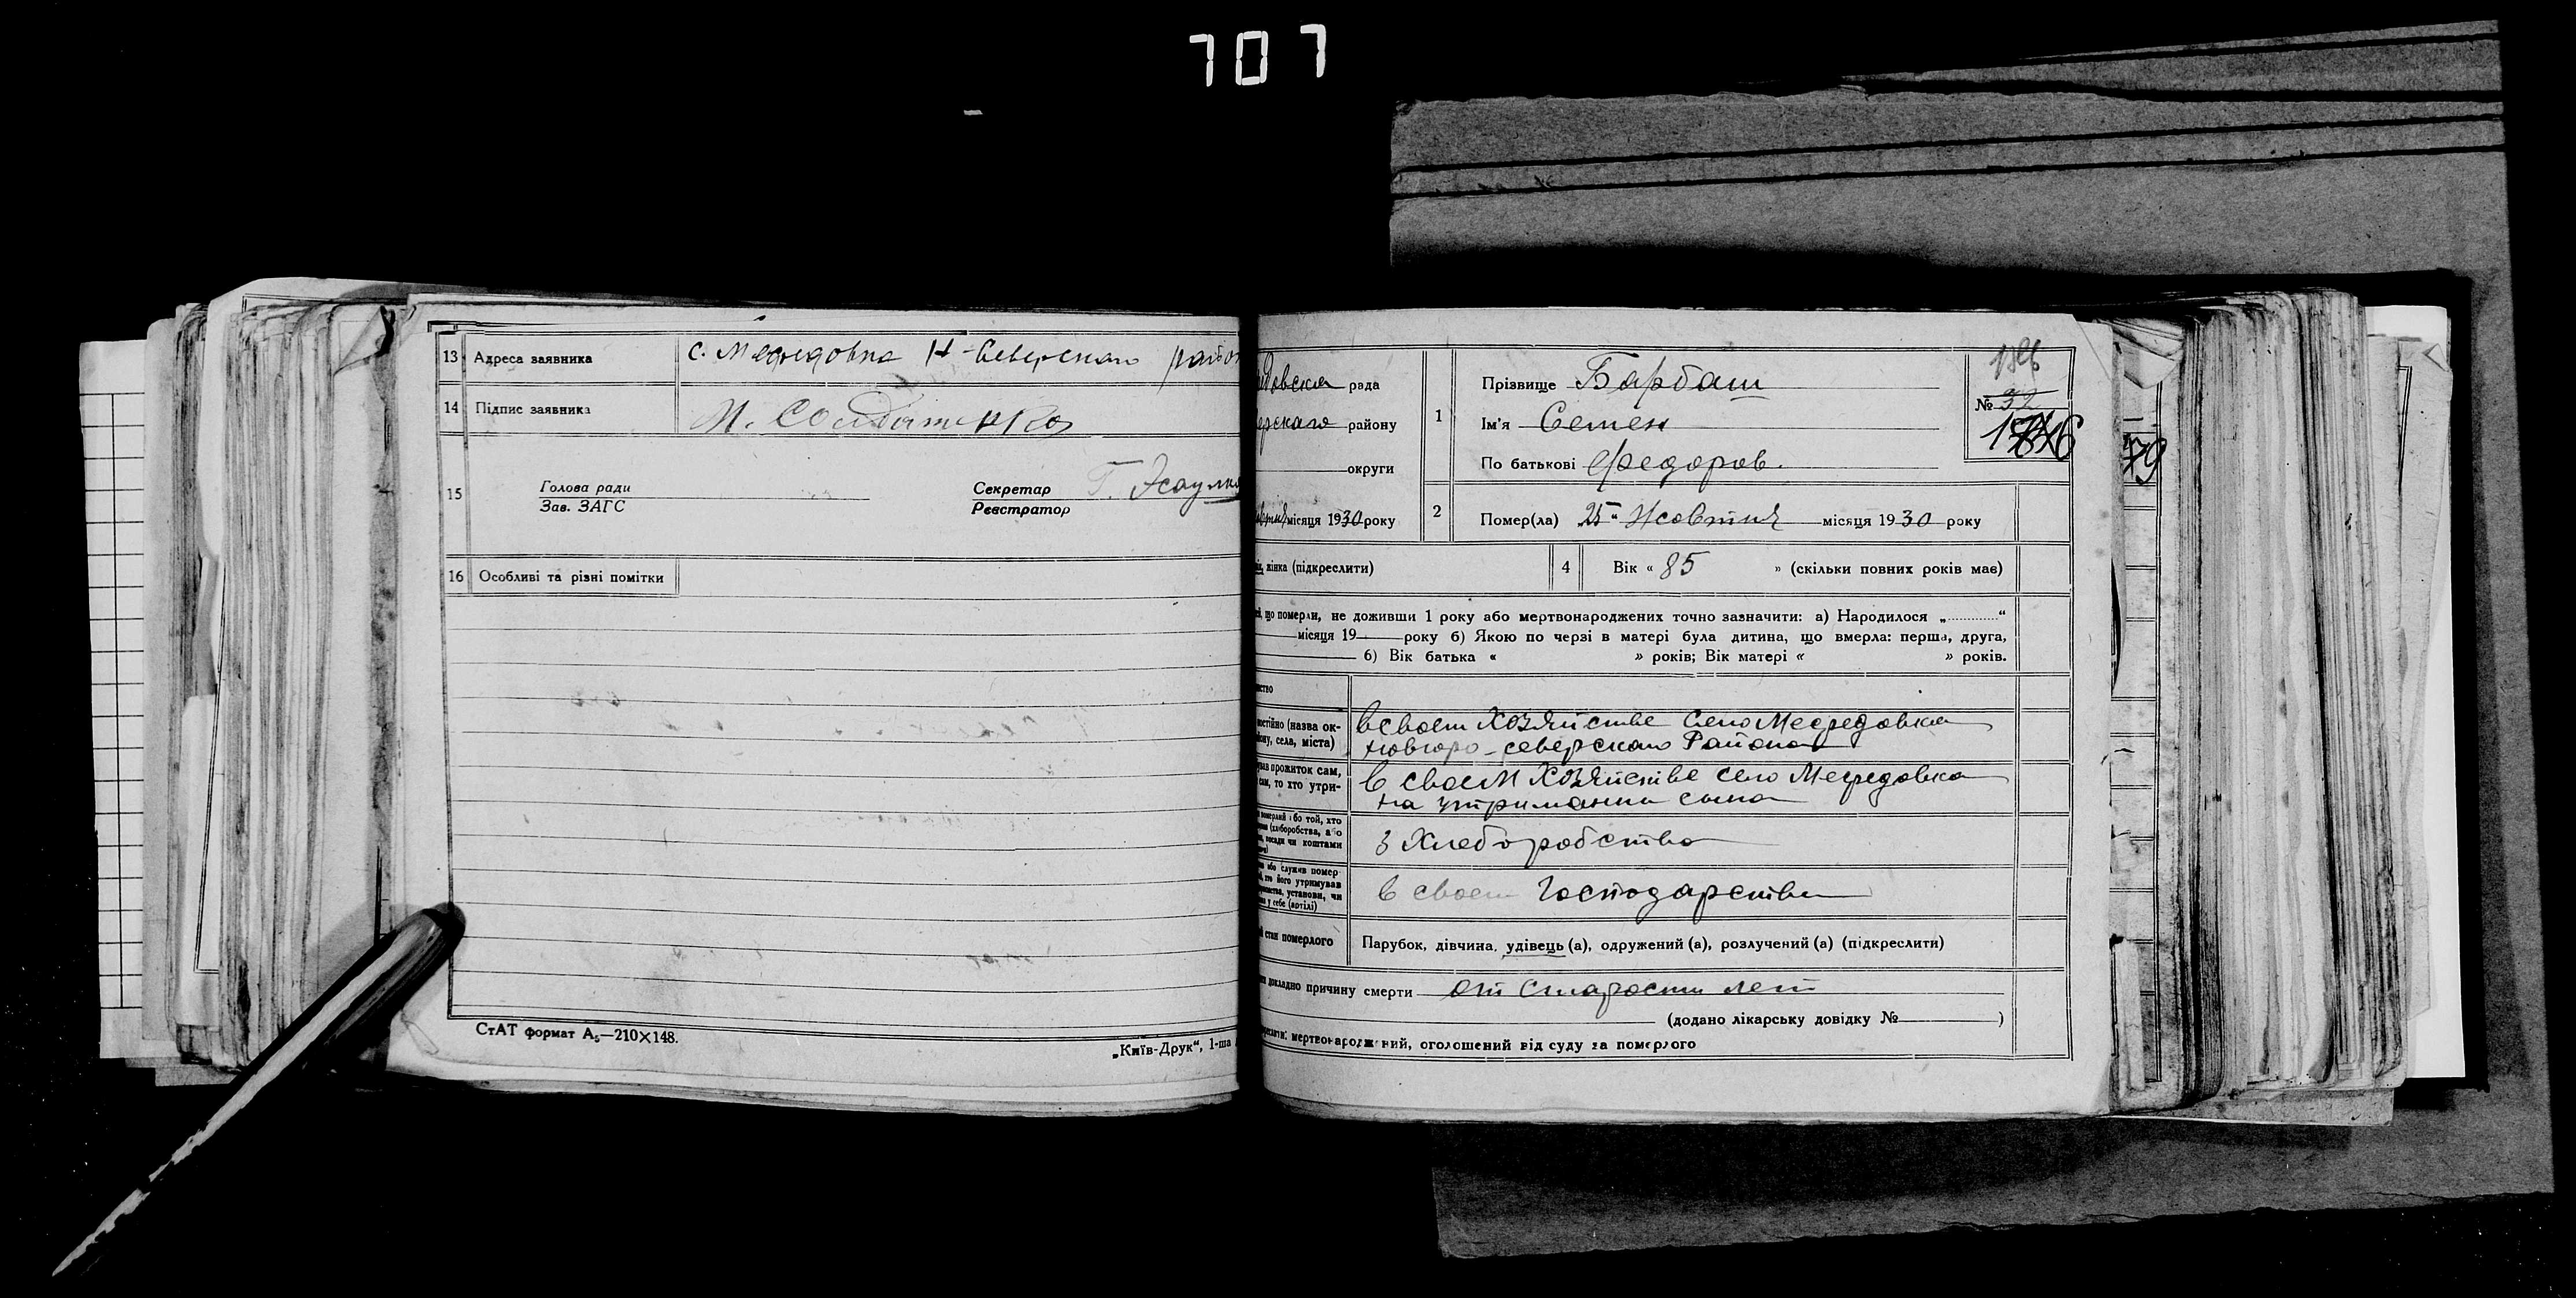 707
13 Адреса заявника с. Мефедовка Н-Северскаго район
14 Підпис заявника М. Солдатенко
15 Голова ради Секретар Г. Эсаулко
Зав. ЗАГС Реєстратор
16 Особливі та різні помітки
СтАТ формат А₅—210×148.
„Київ-Друк“, 1-ша
рада
ерскаго району
округи
місяця 1930 року
1 Прізвище Барбаш
Ім'я Семен
По батькові Федоров.
№ 32
79
2 Помер(ла) „25“ Жовтня місяця 1930 року
жінка (підкреслити) 4 Вік « 85 » (скільки повних років має)
що померли, не доживши 1 року або мертвонароджених точно зазначити: а) Народилося „ “
місяця 19 року б) Якою по черзі в матері була дитина, що вмерла: перша, друга,
6) Вік батька « » років; Вік матері « » років.
(назва ок-
села, міста)
в своем хозяйстве село Мефедовка
новгоро-северскаго Района
прожиток сам,
сам, то хто утри-
в своем хозяйстве село Мефедовка
на утримании сына
померлий або той, хто
(хліборобства, або
посади чи коштами
з Хлеборобства
або служив помер-
хто його утримував
установи, чи
у себе (артілі)
в своем Господарстви
стан померлого Парубок, дівчина, удівець (а), одружений (а), розлучений (а) (підкреслити)
докладно причину смерти от старости лет
(додано лікарську довідку № )
мертвонароджений, оголошений від суду за померлого